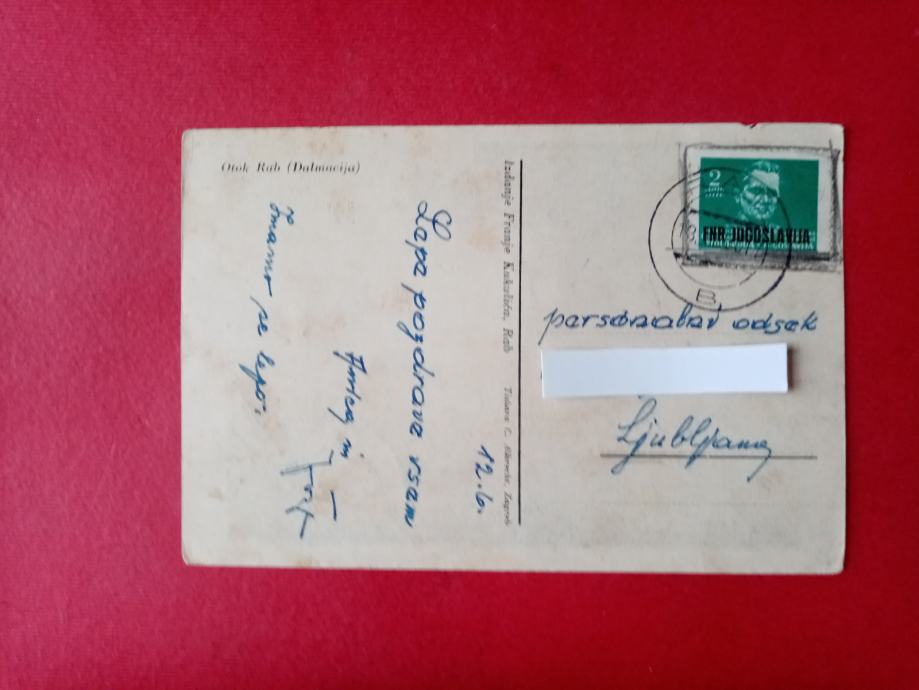 Otok Rab (Dalmacija)
12. 6.
Lepe pozdrave vsem
in
Imamo se lepo.
Izdanje Franje Kukulića, Rab
Tiskara C. Albrecht, Zagreb
2
FNR JUGOSLAVIJA
B
personalni odsek
Ljubljana